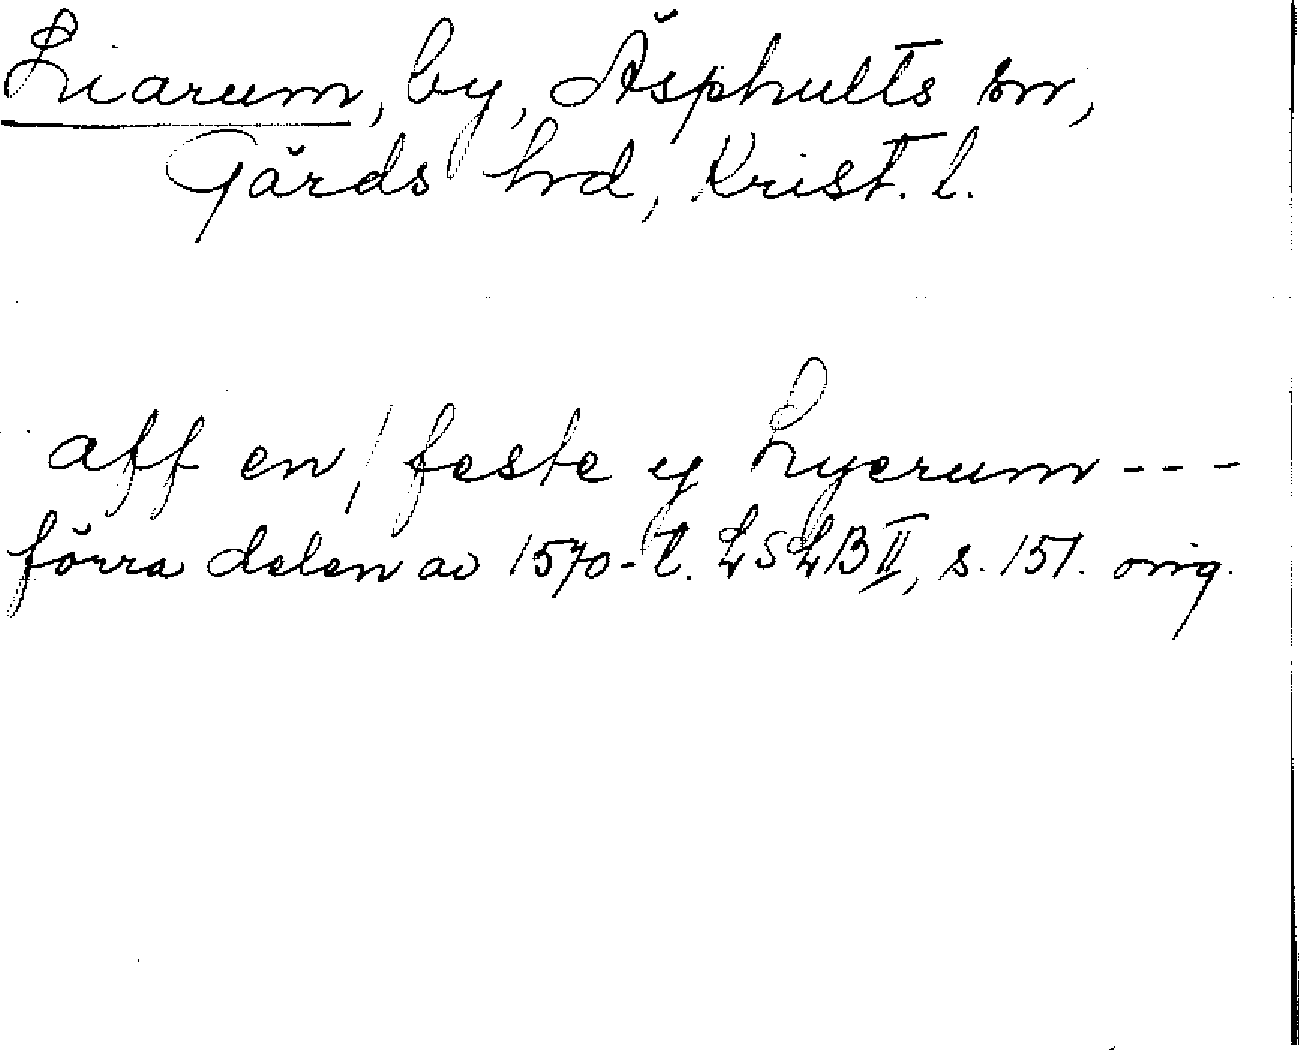 Liarum, by, Äsphults sn,
Gärds hrd, Krist. l.
aff en / feste y Lyerum ---
förra delen av 1570-t. LSLB II, s. 151. orig.